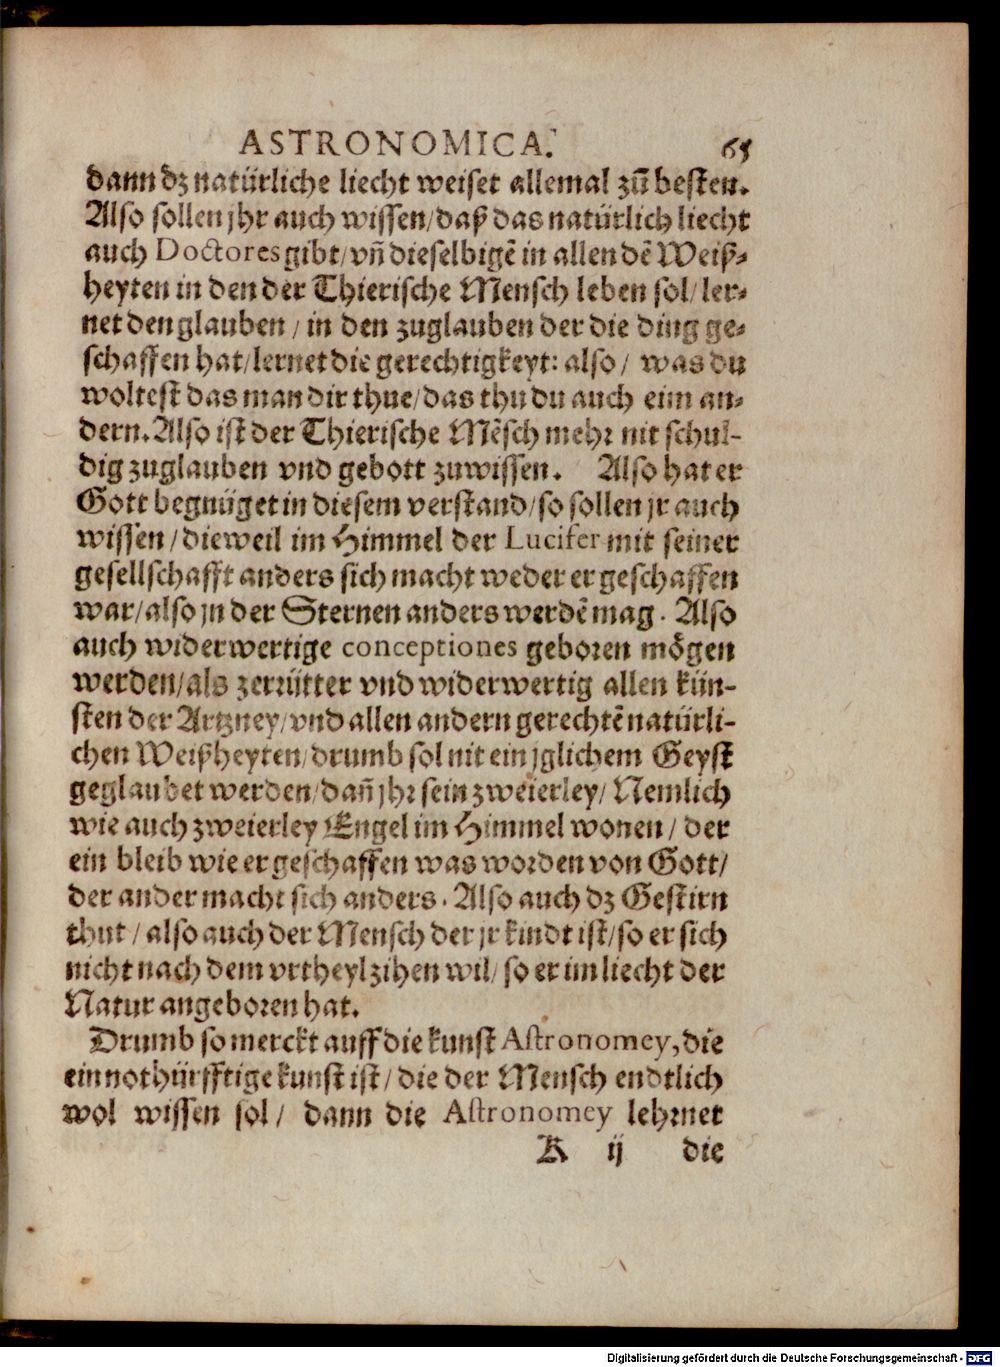 ASTRONOMICA. 65
dann dz natürliche liecht weiset allemal zū besten.
Also sollen jhr auch wissen/daß das natürlich liecht
auch Doctores gibt/vñ dieselbigē in allen dē Weiß-
heyten in den der Thierische Mensch leben sol/ ler-
net den glauben / in den zuglauben der die ding ge-
schaffen hat/lernet die gerechtigkeyt: also / was du
woltest das man dir thue/das thu du auch eim an-
dern. Also ist der Thierische Mēsch mehr nit schul-
dig zuglauben vnd gebott zuwissen. Also hat er
Gott begnüget in diesem verstand/so sollen jr auch
wissen / dieweil im Himmel der Lucifer mit seiner
gesellschafft anders sich macht weder er geschaffen
war/also jn der Sternen anders werdē mag. Also
auch widerwertige conceptiones geboren mögen
werden/als zerrütter vnd widerwertig allen kün-
sten der Artzney/vnd allen andern gerechtē natürli-
chen Weißheyten/drumb sol nit ein jglichem Geyst
geglaubet werden/dañ jhr sein zweierley/ Nemlich
wie auch zweierley Engel im Himmel wonen / der
ein bleib wie er geschaffen was worden von Gott/
der ander macht sich anders. Also auch dz Gestirn
thut / also auch der Mensch der jr kindt ist/so er sich
nicht nach dem vrtheyl zihen wil/ so er im liecht der
Natur angeboren hat.
Drumb so merckt auff die kunst Astronomey, die
ein nothürfftige kunst ist / die der Mensch endtlich
wol wissen sol / dann die Astronomey lehrnet
K ij die
Digitalisierung gefördert durch die Deutsche Forschungsgemeinschaft - DFG